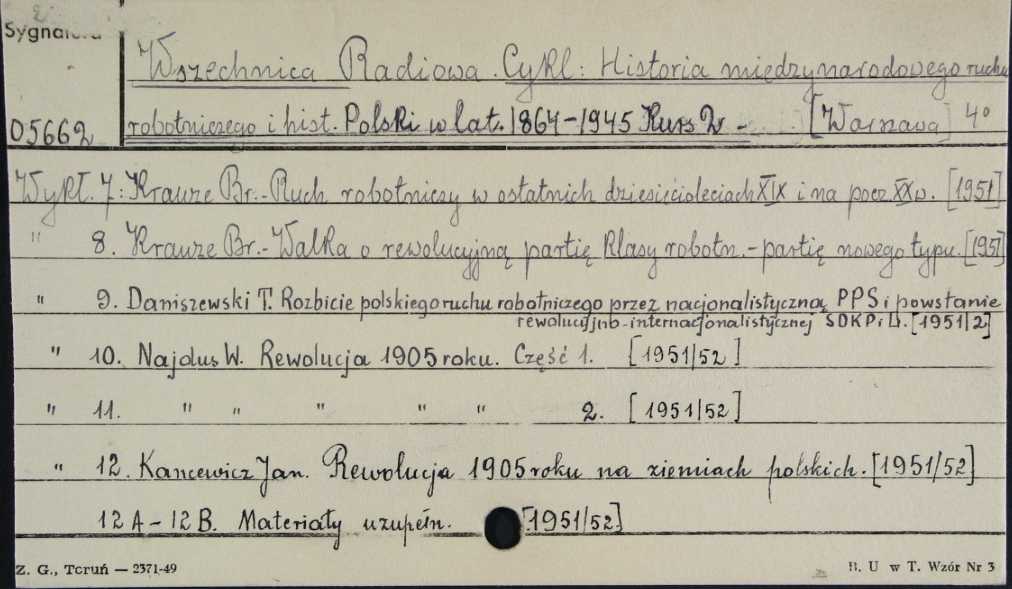 2
Sygnatura
Wszechnica Radiowa. Cykl: Historia międzynarodowego ruchu
05662 robotniczego i hist. Polski w lat. 1864-1945 Kurs 2 - [Warszawa] 4°
Wykł. 7: Krauze Br.- Ruch robotniczy w ostatnich dziesięcioleciach XIX i na pocz. XX w. [1951]
" 8. Krauze Br.- Walka o rewolucyjną partię klasy robotn.- partię nowego typu. [1951]
" 9. Daniszewski T. Rozbicie polskiego ruchu robotniczego przez nacjonalistyczną PPS i powstanie
rewolucyjno-internacjonalistycznej SDKPiL. [1951/2]
" 10. Najdus W. Rewolucja 1905 roku. Część 1. [1951/52]
" 11. " " " " " 2. [1951/52]
" 12. Kancewicz Jan. Rewolucja 1905 roku na ziemiach polskich. [1951/52]
12A - 12B. Materiały uzupełn. [1951/52]
Z. G., Toruń — 2371-49 B. U w T. Wzór Nr 3